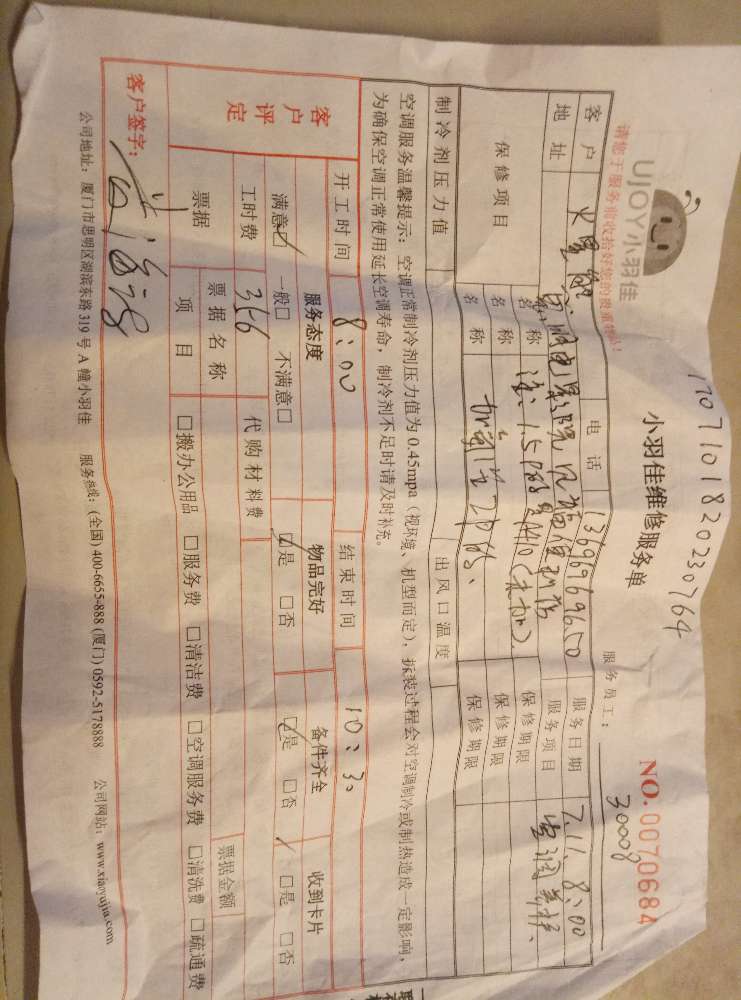 1707101820230764
UJOY小羽佳
小羽佳维修服务单
NO.0070684
请您于服务前收拾好您的贵重物品!
服务员工:
30008
客户
电话 13696969650
服务日期 7.11. 8:00
地址
服务项目
保修项目
名称 1.5P 保修期限
名称 保修期限
名称 2P 保修期限
制冷剂压力值 出风口温度
空调服务温馨提示:空调正常制冷剂压力值为0.45mpa(视环境、机型而定),拆装过程会对空调制冷或制热造成一定影响,
为确保空调正常使用延长空调寿命,制冷剂不足时请及时补充。
开工时间 8:00 结束时间 10:30
客户评定
服务态度 物品完好 备件齐全 收到卡片
满意☑ 一般□ 不满意□ ☑是 □否 ☑是 □否 □是 □否
工时费 366 代购材料费
票据 票据名称 票据金额
项目 □搬办公用品 □服务费 □清洁费 □空调服务费 □清洗费 □疏通费
客户签字:
公司地址:厦门市思明区湖滨东路319号A幢小羽佳 服务热线:(全国)400-6655-888 (厦门)0592-5178888 公司网站:www.xiaoyujia.com